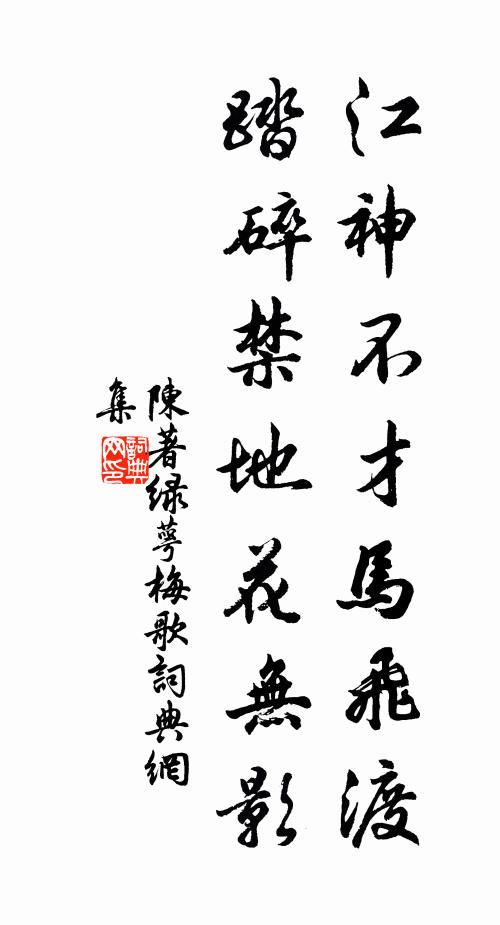 江神不才馬飛渡
踏碎禁地花無影
陳著緑萼梅歌詞典網
集
詞典
网包